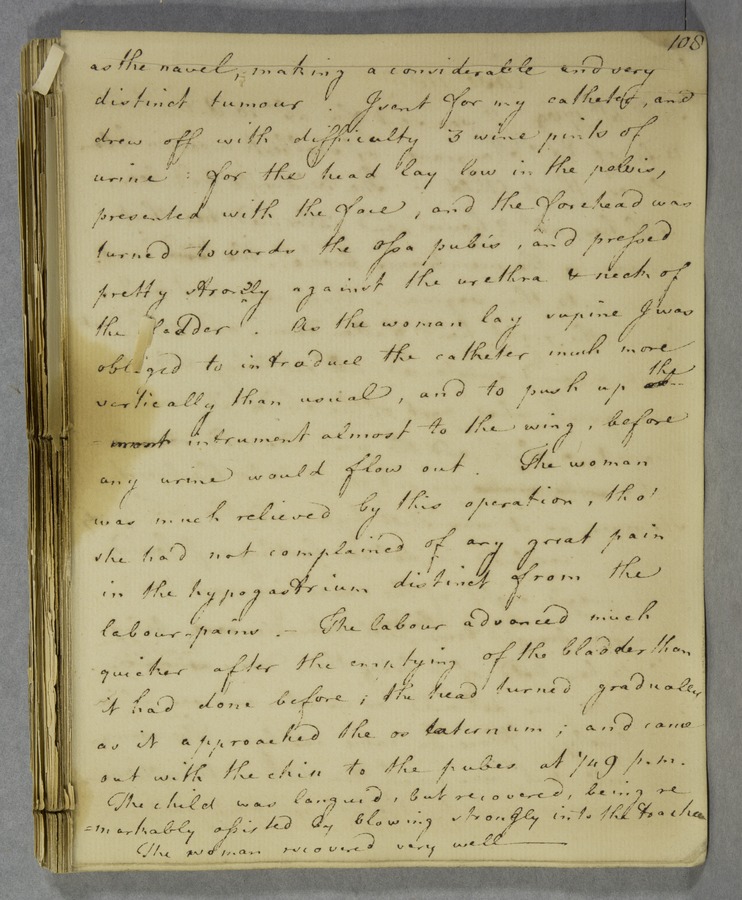 108
as the navel, making a considerable and very
distinct tumour. I sent for my catheter, and
drew off with difficulty 3 wine pints of
urine: for the head lay low in the pelvis,
presented with the face, and the forehead was
turned towards the ossa pubis, and pressed
pretty strongly against the urethra & neck of
the bladder. As the woman lay supine I was
obliged to introduce the catheter much more
vertically than usual, and to push up the
intrument almost to the wing, before
any urine would flow out. The woman
was much relieved by this operation, tho'
she had not complained of any great pain
in the hypogastrium distinct from the
labour-pains. – The labour advanced much
quicker after the emptying of the bladder than
it had done before; the head turned gradually
as it approached the os externum; and came
out with the chin to the pubes at 7 49 p.m.
The child was languid, but recovered, being re
=markably assisted by blowing strongly into the trachea
The woman recovered very well